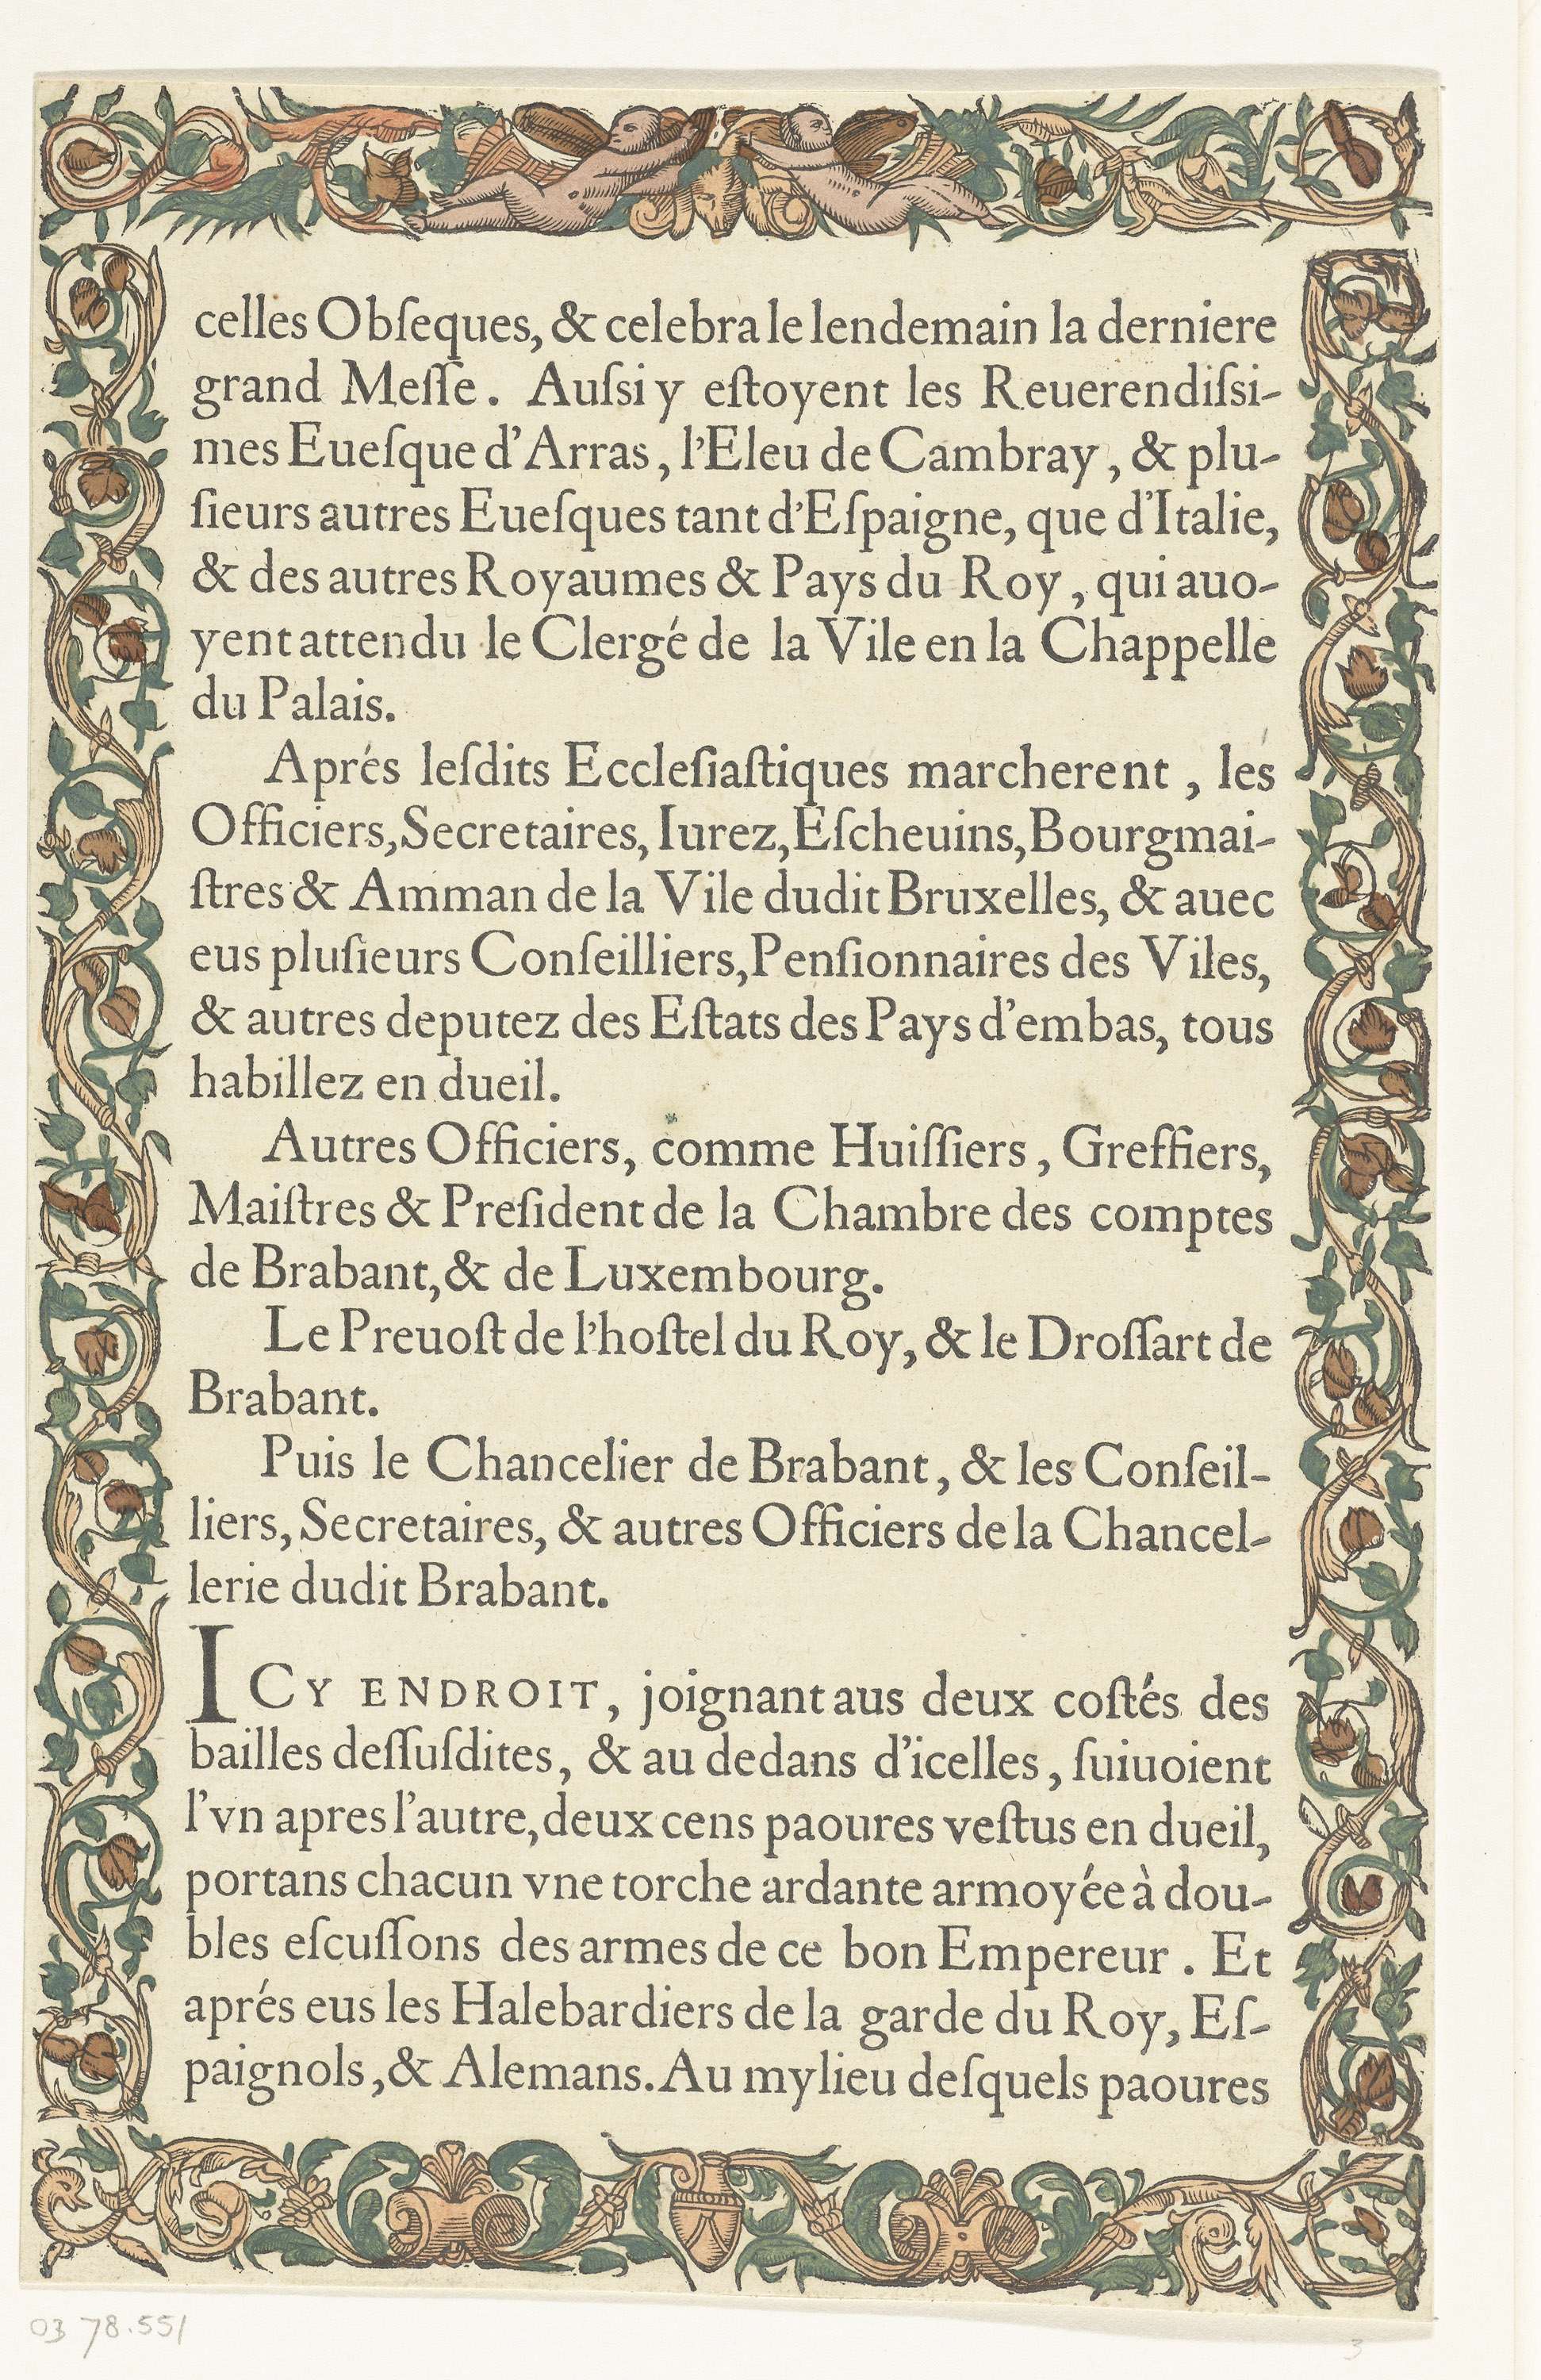 celles Obſeques, & celebra le lendemain la derniere
grand Meſſe. Auſsi y eſtoyent les Reuerendiſsi-
mes Eueſque d'Arras, l'Eleu de Cambray, & plu-
ſieurs autres Eueſques tant d'Eſpaigne, que d'Italie,
& des autres Royaumes & Pays du Roy, qui auo-
yent attendu le Clergé de la Vile en la Chappelle
du Palais.
Aprés leſdits Eccleſiaſtiques marcherent, les
Officiers, Secretaires, Iurez, Eſcheuins, Bourgmai-
ſtres & Amman de la Vile dudit Bruxelles, & auec
eus pluſieurs Conſeilliers, Penſionnaires des Viles,
& autres deputez des Eſtats des Pays d'embas, tous
habillez en dueil.
Autres Officiers, comme Huiſſiers, Greffiers,
Maiſtres & Preſident de la Chambre des comptes
de Brabant, & de Luxembourg.
Le Preuoſt de l'hoſtel du Roy, & le Droſſart de
Brabant.
Puis le Chancelier de Brabant, & les Conſeil-
liers, Secretaires, & autres Officiers de la Chancel-
lerie dudit Brabant.
ICY ENDROIT, joignant aus deux coſtés des
bailles deſſuſdites, & au dedans d'icelles, ſuiuoient
l'vn apres l'autre, deux cens paoures veſtus en dueil,
portans chacun vne torche ardante armoyée à dou-
bles eſcuſſons des armes de ce bon Empereur. Et
aprés eus les Halebardiers de la garde du Roy, Eſ-
paignols, & Alemans. Au mylieu deſquels paoures
03 78.551
3